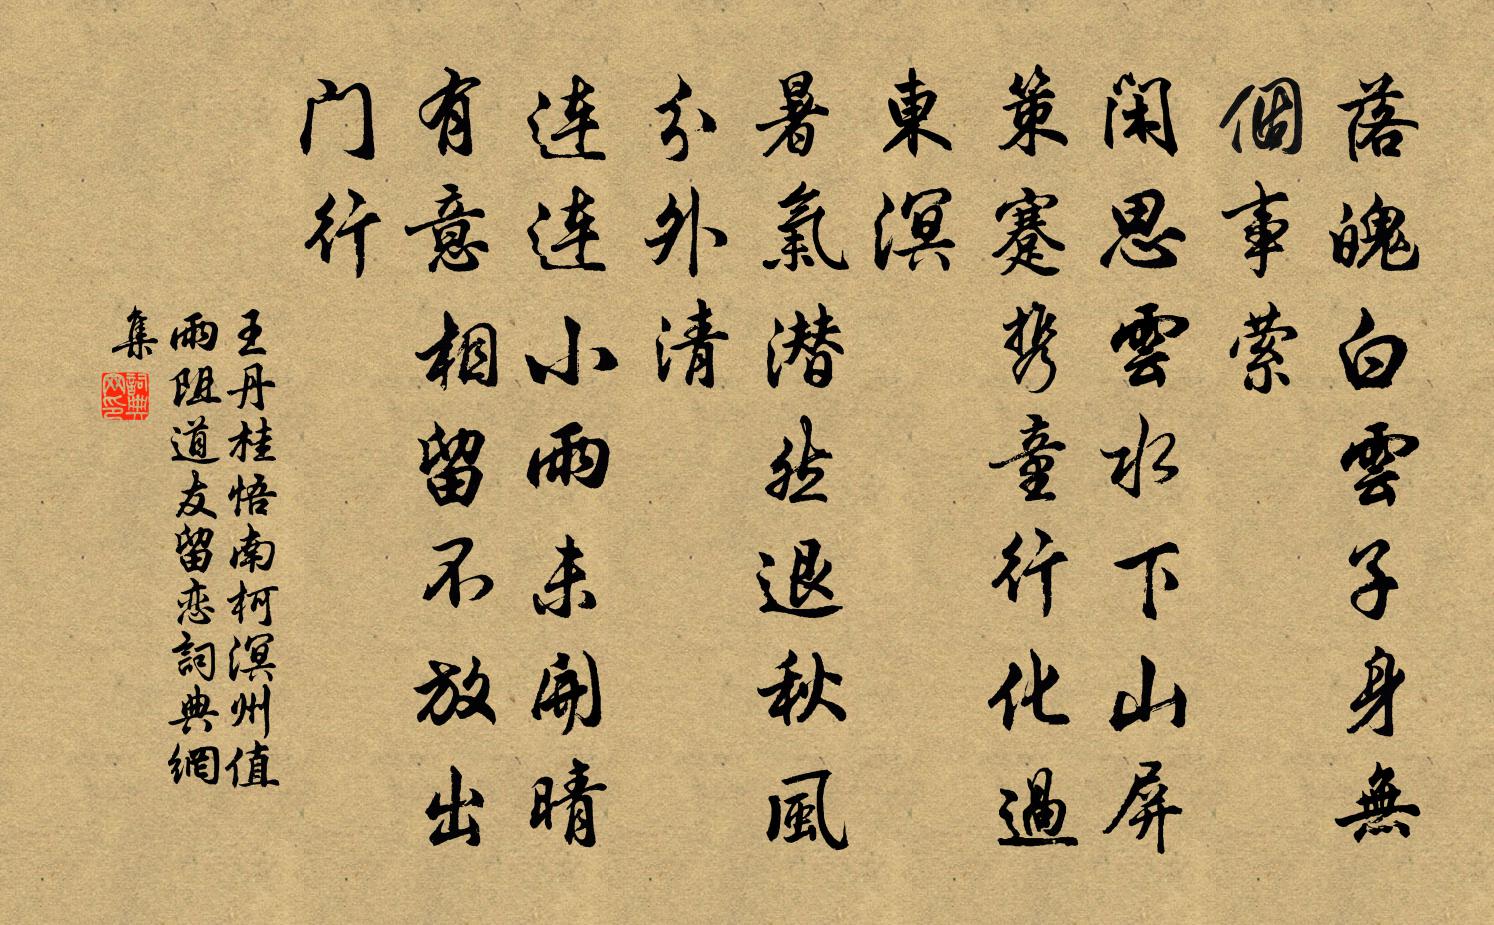 落魄白雲子身無
個事縈
闲思雲水下山屏
策蹇携童行化過
東溟
暑氣潜然退秋風
分外清
连连小雨未開晴
有意相留不放出
门行
王丹桂悟南柯溟州值
雨阻道友留恋詞典網
集
詞典網印